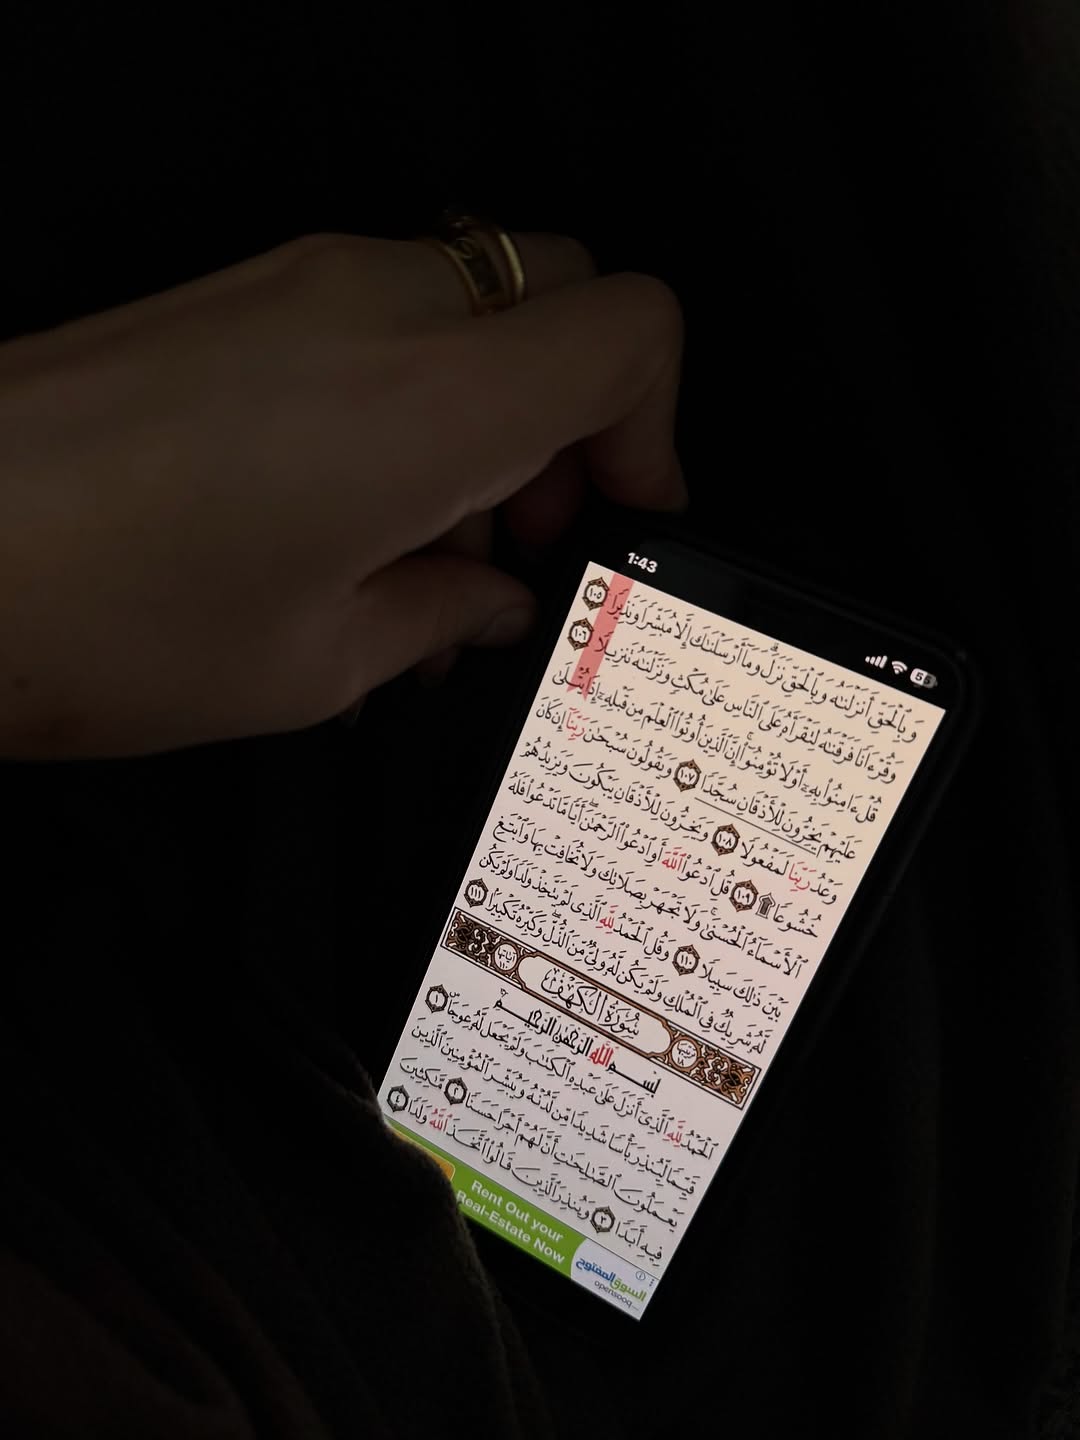 1:43
55
وَبِٱلْحَقِّ أَنزَلْنَـٰهُ وَبِٱلْحَقِّ نَزَلَ ۗ وَمَآ أَرْسَلْنَـٰكَ إِلَّا مُبَشِّرًا وَنَذِيرًا ١٠٥
وَقُرْءَانًا فَرَقْنَـٰهُ لِتَقْرَأَهُۥ عَلَى ٱلنَّاسِ عَلَىٰ مُكْثٍ وَنَزَّلْنَـٰهُ تَنزِيلًا ١٠٦
قُلْ ءَامِنُوا۟ بِهِۦٓ أَوْ لَا تُؤْمِنُوٓا۟ ۚ إِنَّ ٱلَّذِينَ أُوتُوا۟ ٱلْعِلْمَ مِن قَبْلِهِۦٓ إِذَا يُتْلَىٰ
عَلَيْهِمْ يَخِرُّونَ لِلْأَذْقَانِ سُجَّدًا ١٠٧ وَيَقُولُونَ سُبْحَـٰنَ رَبِّنَآ إِن كَانَ
وَعْدُ رَبِّنَا لَمَفْعُولًا ١٠٨ وَيَخِرُّونَ لِلْأَذْقَانِ يَبْكُونَ وَيَزِيدُهُمْ
خُشُوعًا ۩ ١٠٩ قُلِ ٱدْعُوا۟ ٱللَّهَ أَوِ ٱدْعُوا۟ ٱلرَّحْمَـٰنَ ۖ أَيًّا مَّا تَدْعُوا۟ فَلَهُ
ٱلْأَسْمَآءُ ٱلْحُسْنَىٰ ۚ وَلَا تَجْهَرْ بِصَلَاتِكَ وَلَا تُخَافِتْ بِهَا وَٱبْتَغِ
بَيْنَ ذَٰلِكَ سَبِيلًا ١١٠ وَقُلِ ٱلْحَمْدُ لِلَّهِ ٱلَّذِى لَمْ يَتَّخِذْ وَلَدًا وَلَمْ يَكُن
لَّهُۥ شَرِيكٌ فِى ٱلْمُلْكِ وَلَمْ يَكُن لَّهُۥ وَلِىٌّ مِّنَ ٱلذُّلِّ ۖ وَكَبِّرْهُ تَكْبِيرًا ١١١
ترتيبها ١٨ سُورَةُ الكَهْفِ آياتها ١١٠
بِسْمِ ٱللَّهِ ٱلرَّحْمَـٰنِ ٱلرَّحِيمِ
ٱلْحَمْدُ لِلَّهِ ٱلَّذِىٓ أَنزَلَ عَلَىٰ عَبْدِهِ ٱلْكِتَـٰبَ وَلَمْ يَجْعَل لَّهُۥ عِوَجَا ۜ ١
قَيِّمًا لِّيُنذِرَ بَأْسًا شَدِيدًا مِّن لَّدُنْهُ وَيُبَشِّرَ ٱلْمُؤْمِنِينَ ٱلَّذِينَ
يَعْمَلُونَ ٱلصَّـٰلِحَـٰتِ أَنَّ لَهُمْ أَجْرًا حَسَنًا ٢ مَّـٰكِثِينَ
فِيهِ أَبَدًا ٣ وَيُنذِرَ ٱلَّذِينَ قَالُوا۟ ٱتَّخَذَ ٱللَّهُ وَلَدًا ٤
Rent Out your
Real-Estate Now
السوق المفتوح
opensooq